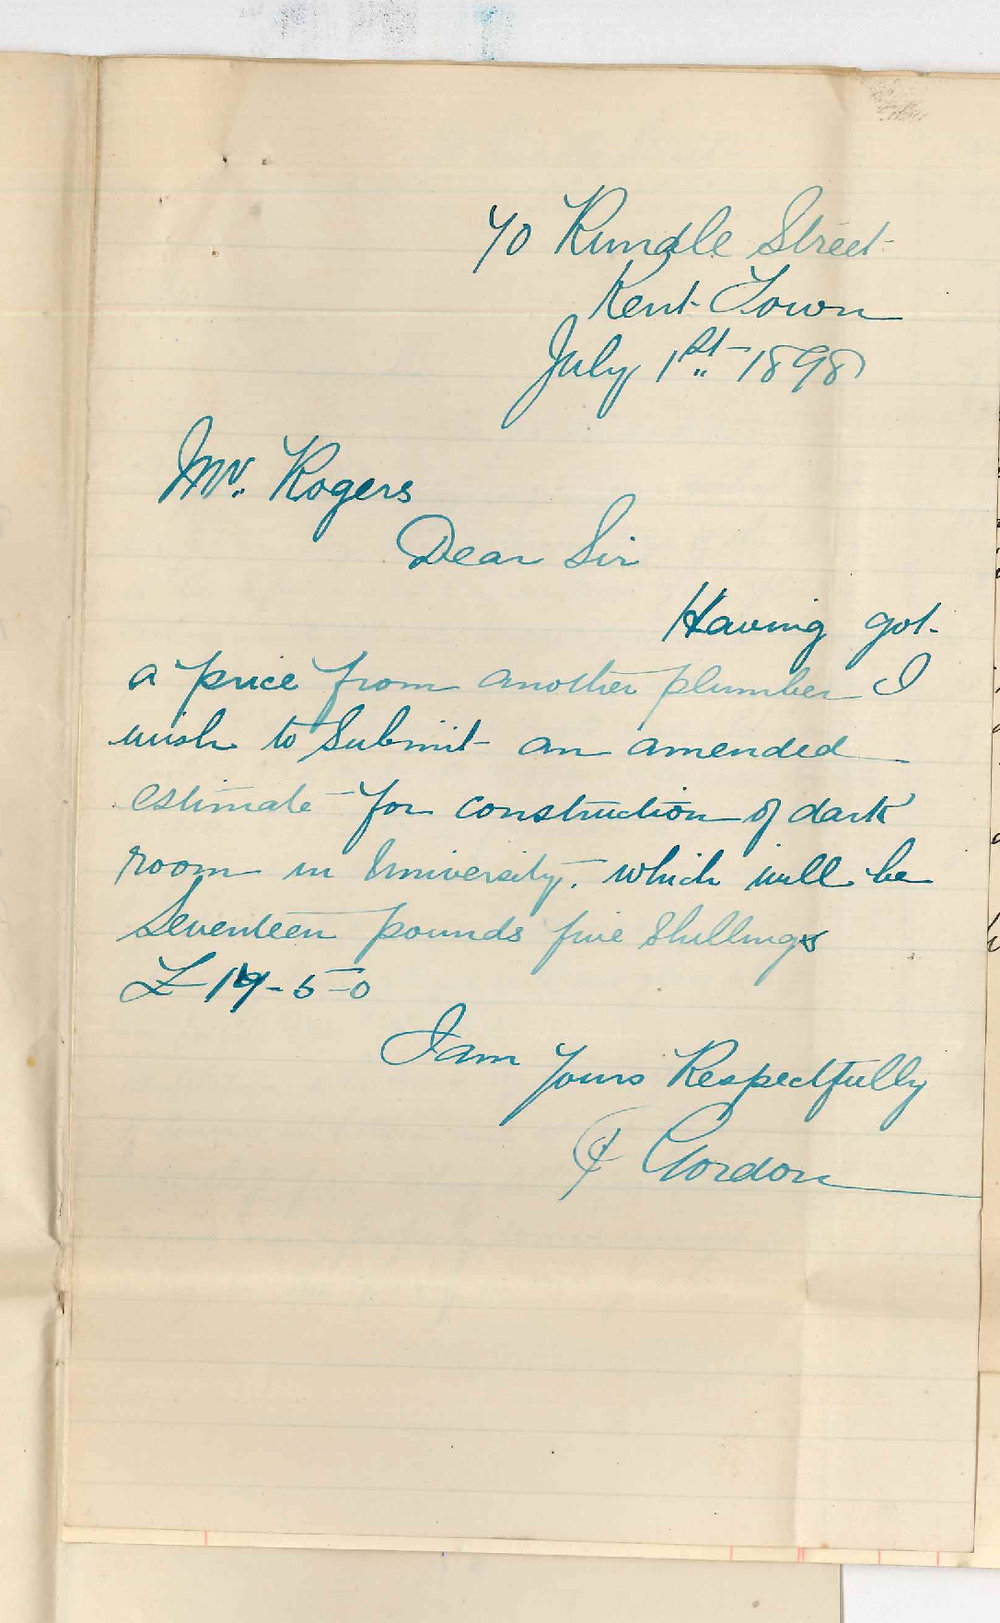 70 Rundle Street
Kent Town
July 1st 1898
Mr. Rogers
Dear Sir
Having got
a price from another plumber I
wish to Submit an amended
estimate for construction of dark
room in University. which will be
Seventeen pounds five Shillings
£17-5-0
I am
Yours Respectfully
Gordon